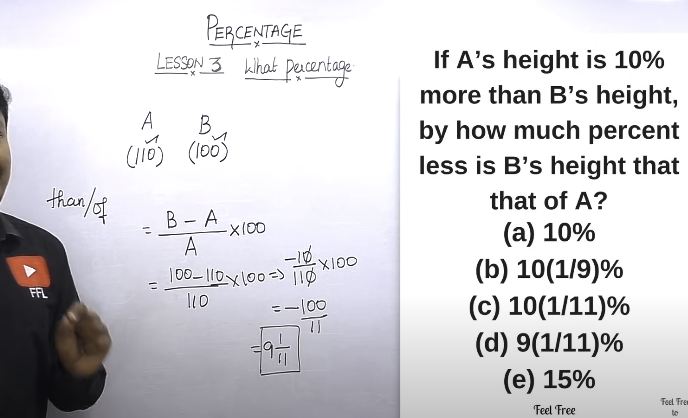 PERCENTAGE
LESSON 3 What Percentage
A B
(110) (100)
than/of
= B - A / A × 100
= 100-110 / 110 × 100 => -10 / 110 × 100
= -100 / 11
= 9 1/11
FFL
If A's height is 10%
more than B's height,
by how much percent
less is B's height that
that of A?
(a) 10%
(b) 10(1/9)%
(c) 10(1/11)%
(d) 9(1/11)%
(e) 15%
Feel Free
Feel Free
to